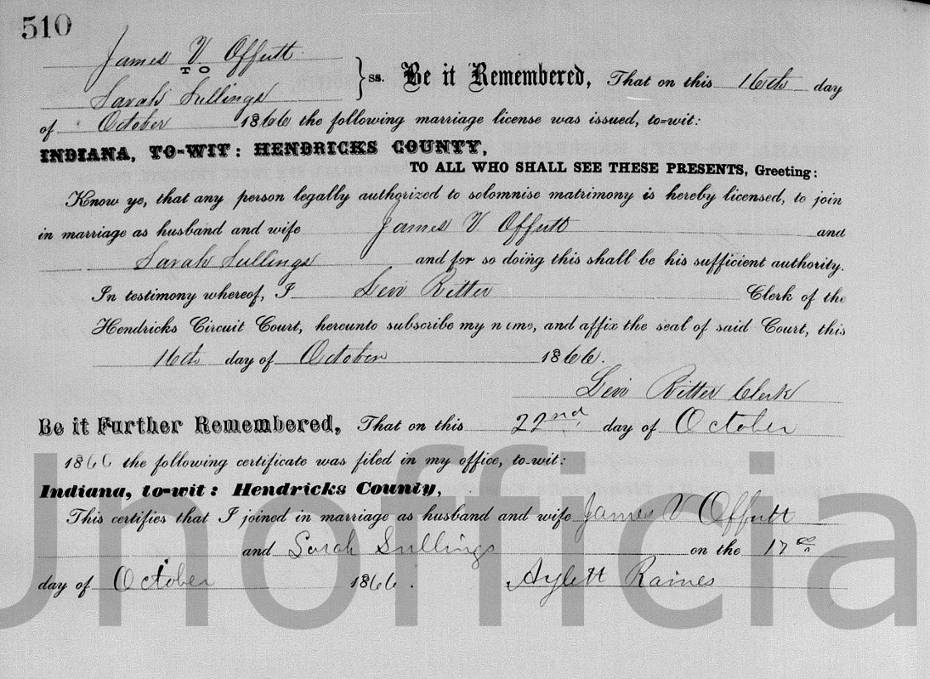 510
James V. Offutt
TO
Sarah Sullings
} ss. Be it Remembered, That on this 16th day
of October 1866 the following marriage license was issued, to-wit:
INDIANA, TO-WIT: HENDRICKS COUNTY,
TO ALL WHO SHALL SEE THESE PRESENTS, Greeting:
Know ye, that any person legally authorized to solomnise matrimony is hereby licensed, to join
in marriage as husband and wife James V Offutt and
Sarah Sullings and for so doing this shall be his sufficient authority.
In testimony whereof, I Levi Ritter Clerk of the
Hendricks Circuit Court, hereunto subscribe my name, and affix the seal of said Court, this
16th day of October 1866.
Levi Ritter Clerk
Be it Further Remembered, That on this 22nd day of October
1866 the following certificate was filed in my office, to-wit:
Indiana, to-wit: Hendricks County,
This certifies that I joined in marriage as husband and wife James V Offutt
and Sarah Sullings on the 17th
day of October 1866. Aylett Raines
Unofficia